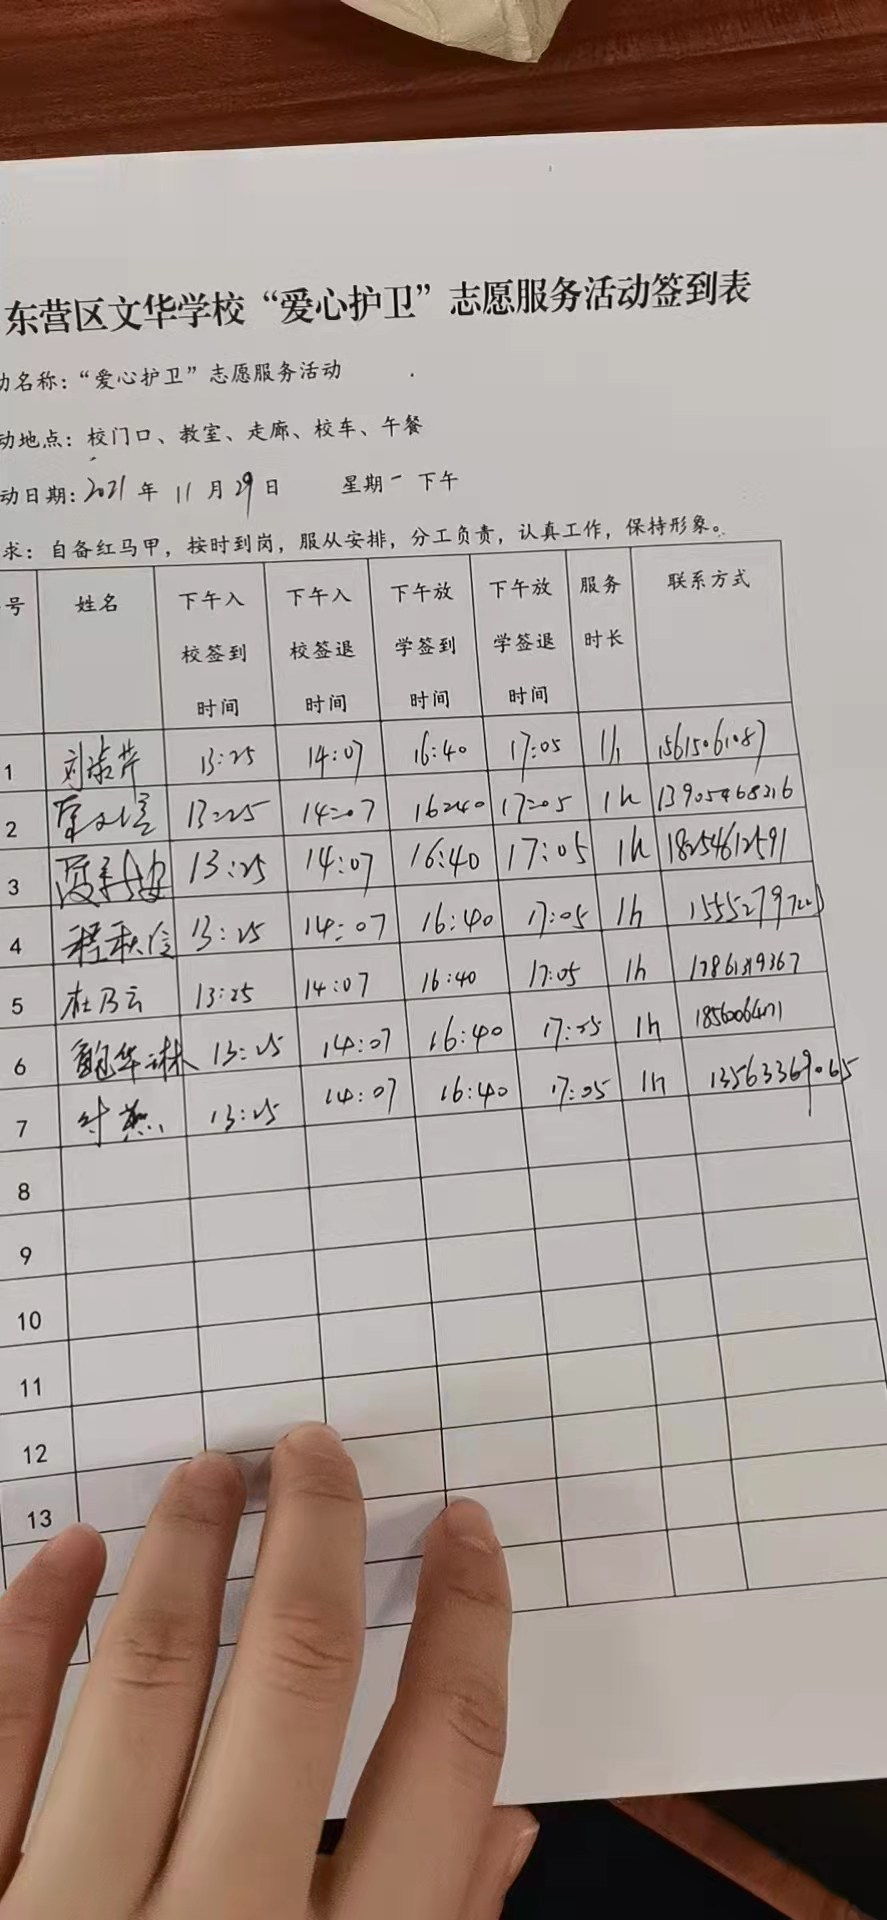 东营区文华学校“爱心护卫”志愿服务活动签到表
动名称：“爱心护卫”志愿服务活动
动地点：校门口、教室、走廊、校车、午餐
动日期：2021年11月29日 星期一 下午
求：自备红马甲，按时到岗，服从安排，分工负责，认真工作，保持形象。
号 姓名 下午入校签到时间 下午入校签退时间 下午放学签到时间 下午放学签退时间 服务时长 联系方式
1 刘淑芹 13:25 14:07 16:40 17:05 1h 15615061087
2 13:25 14:07 16:40 17:05 1h 13905468216
3 13:25 14:07 16:40 17:05 1h 18254612591
4 程秋信 13:25 14:07 16:40 17:05 1h
5 杜乃云 13:25 14:07 16:40 17:05 1h
6 鲍华琳 13:25 14:07 16:40 17:05 1h
7 付燕 13:25 14:07 16:40 17:05 1h 13563369065
8
9
10
11
12
13